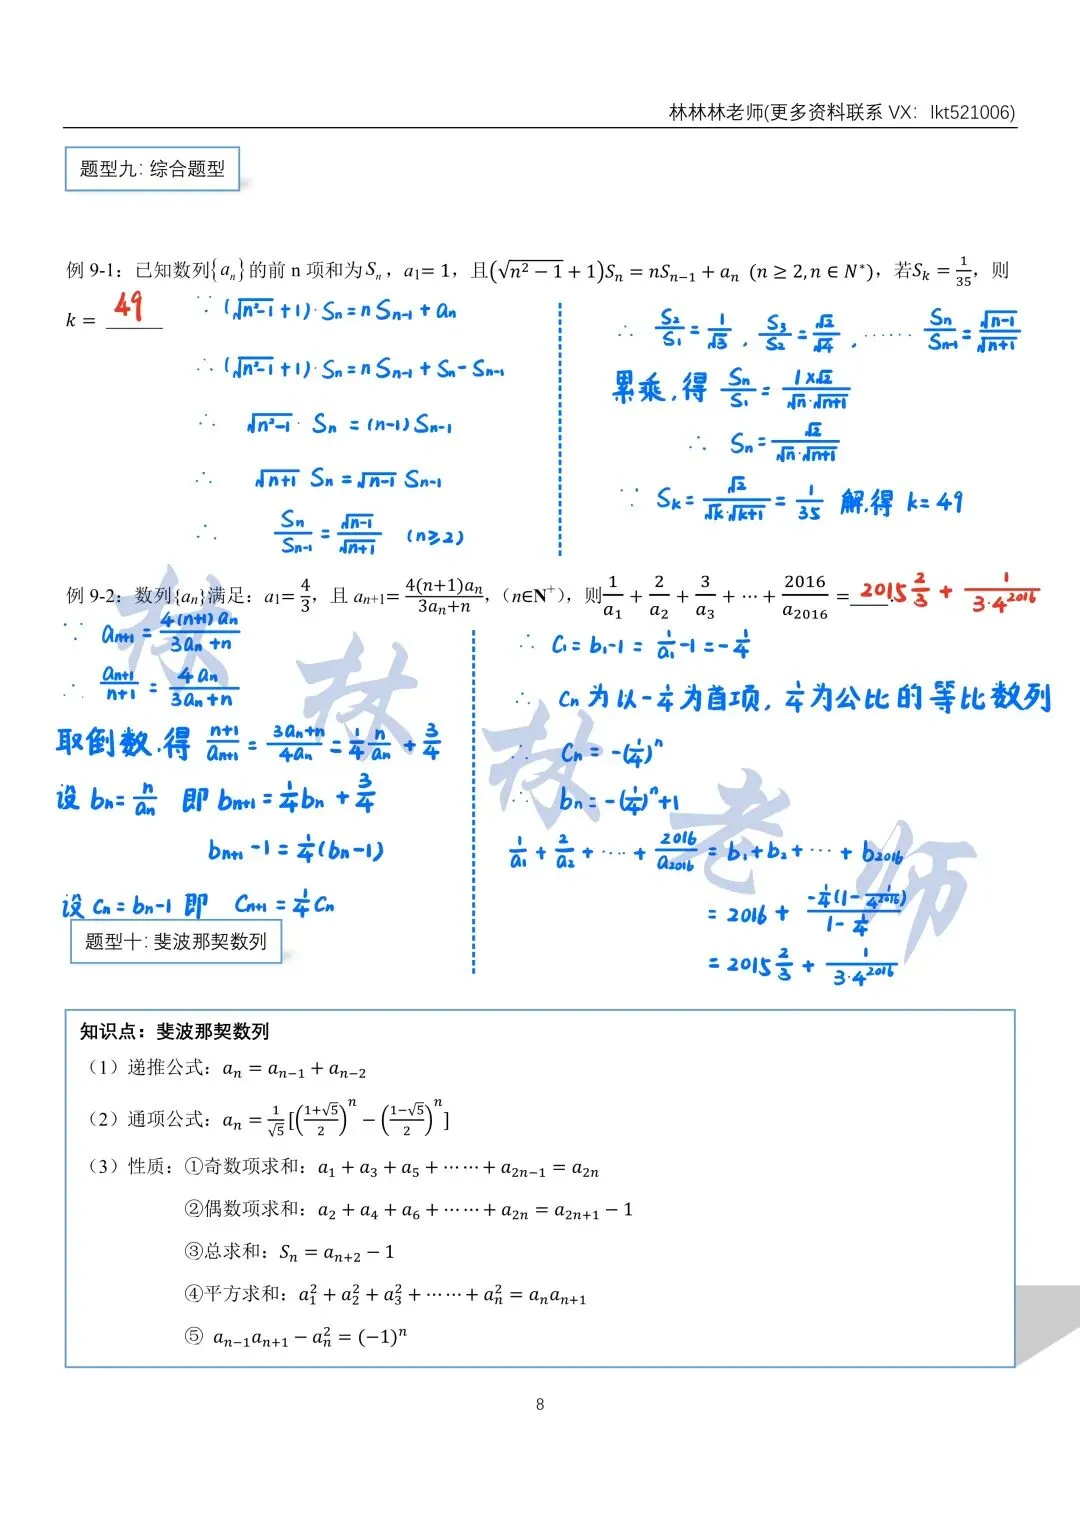 林林林老师(更多资料联系 VX：lkt521006)
题型九：综合题型
例 9-1：已知数列{aₙ}的前 n 项和为 Sₙ，a₁= 1，且(√(n²−1) + 1)Sₙ = nSₙ₋₁ + aₙ (n ≥ 2, n ∈ N*)，若Sₖ = 1/35，则
k = 49
∵ (√(n²-1) + 1)·Sₙ = n Sₙ₋₁ + aₙ
∴ (√(n²-1) + 1)·Sₙ = n Sₙ₋₁ + Sₙ - Sₙ₋₁
∴ √(n²-1)· Sₙ = (n-1) Sₙ₋₁
∴ √(n+1) Sₙ = √(n-1) Sₙ₋₁
∴ Sₙ/Sₙ₋₁ = √(n-1)/√(n+1) (n≥2)
∴ S₂/S₁ = 1/√3 , S₃/S₂ = √2/√4 , ······ Sₙ/Sₙ₋₁ = √(n-1)/√(n+1)
累乘,得 Sₙ/S₁ = 1×√2/(√n·√(n+1))
∴ Sₙ = √2/(√n·√(n+1))
∵ Sₖ = √2/(√k·√(k+1)) = 1/35 解得 k = 49
例 9-2：数列{aₙ}满足：a₁= 4/3，且 aₙ₊₁= 4(n+1)aₙ/(3aₙ+n)，（n∈N⁺），则 1/a₁ + 2/a₂ + 3/a₃ + ⋯ + 2016/a₂₀₁₆ = 2015 2/3 + 1/(3·4²⁰¹⁶).
∵ aₙ₊₁ = 4(n+1)aₙ/(3aₙ+n)
∴ aₙ₊₁/(n+1) = 4aₙ/(3aₙ+n)
取倒数,得 (n+1)/aₙ₊₁ = (3aₙ+n)/4aₙ = 1/4 n/aₙ + 3/4
设 bₙ = n/aₙ 即 bₙ₊₁ = 1/4 bₙ + 3/4
bₙ₊₁ - 1 = 1/4 (bₙ - 1)
设 Cₙ = bₙ - 1 即 Cₙ₊₁ = 1/4 Cₙ
∴ C₁ = b₁ - 1 = 1/a₁ - 1 = - 1/4
∴ Cₙ 为以 - 1/4 为首项, 1/4 为公比的等比数列
∴ Cₙ = -(1/4)ⁿ
∴ bₙ = -(1/4)ⁿ + 1
1/a₁ + 2/a₂ + ··· + 2016/a₂₀₁₆ = b₁ + b₂ + ··· + b₂₀₁₆
= 2016 + -1/4(1 - 1/4²⁰¹⁶)/(1 - 1/4)
= 2015 2/3 + 1/(3·4²⁰¹⁶)
林林林老师
题型十：斐波那契数列
知识点：斐波那契数列
（1）递推公式：aₙ = aₙ₋₁ + aₙ₋₂
（2）通项公式：aₙ = 1/√5 [((1+√5)/2)ⁿ − ((1−√5)/2)ⁿ]
（3）性质：①奇数项求和：a₁ + a₃ + a₅ + ⋯⋯ + a₂ₙ₋₁ = a₂ₙ
②偶数项求和：a₂ + a₄ + a₆ + ⋯⋯ + a₂ₙ = a₂ₙ₊₁ − 1
③总求和：Sₙ = aₙ₊₂ − 1
④平方求和：a₁² + a₂² + a₃² + ⋯⋯ + aₙ² = aₙaₙ₊₁
⑤ aₙ₋₁aₙ₊₁ − aₙ² = (−1)ⁿ
8